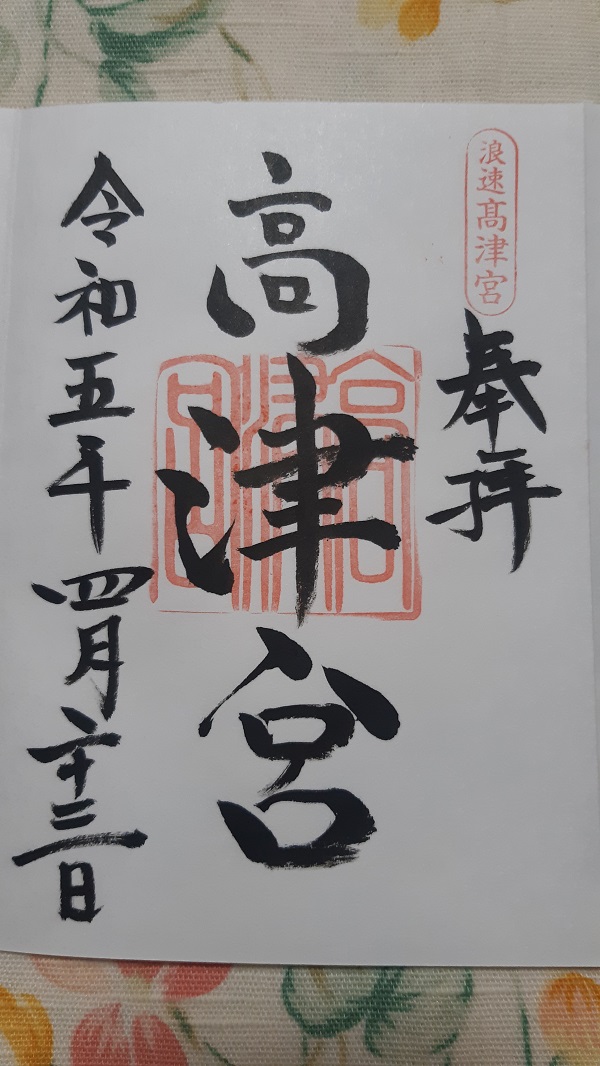 浪速髙津宮
奉拝
高津宮
高津宮
令和五年四月二十三日